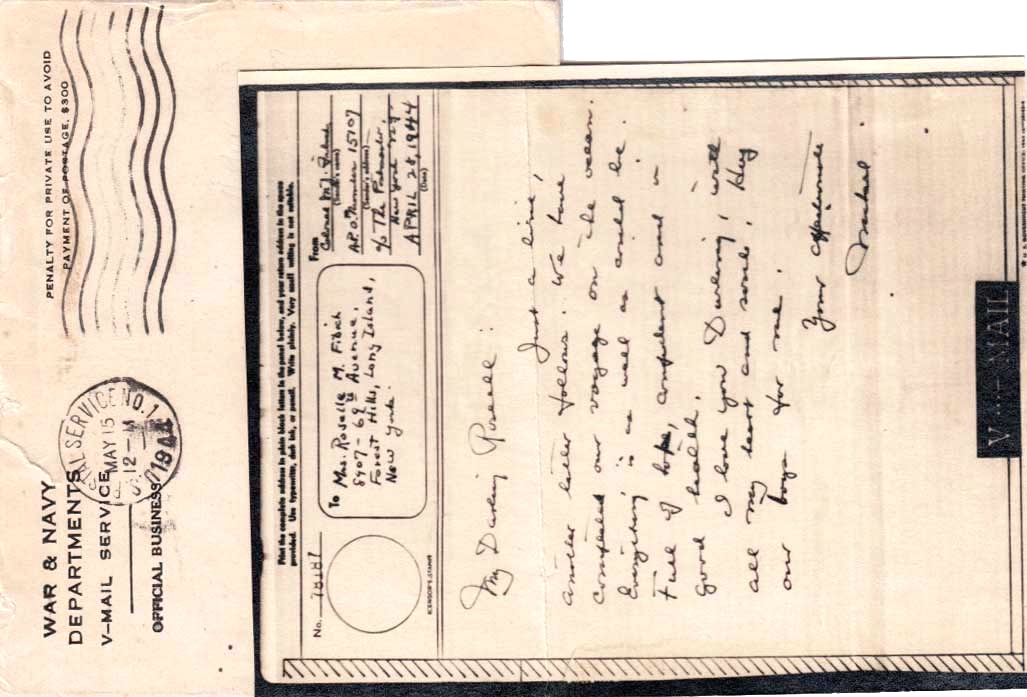 WAR & NAVY
DEPARTMENTS
V-MAIL SERVICE
OFFICIAL BUSINESS
PENALTY FOR PRIVATE USE TO AVOID
PAYMENT OF POSTAGE, $300
POSTAL SERVICE NO. 1
MAY 15
12-M
1944
Print the complete address in plain block letters in the panel below, and your return address in the space
provided. Use typewriter, dark ink, or pencil. Write plainly. Very small writing is not suitable.
No.
(CENSOR'S STAMP)
To Mrs. Roselle M. Fibich
8907-69th Avenue,
Forest Hills, Long Island,
New York.
From
Colonel M.J.
(Sender's name)
A.P.O. Number 15107
(Sender's address)
c/o The Postmaster,
New York N.Y.
APRIL 28, 1944
(Date)
My Darling Roselle:
Just a line,
another letter follows. We have
completed our voyage on the ocean.
Everything is as well as could be.
Full of hope, confident and in
good health.
I love you Darling, with
all my heart and soul. Hug
our boys for me.
Your affectionate
Michael.
V···—MAIL